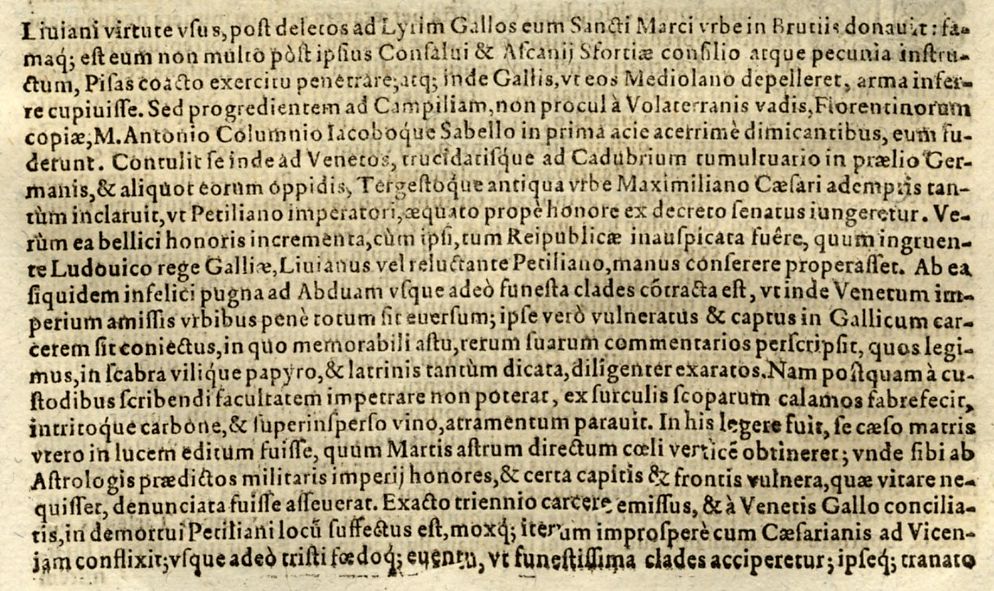 Liuiani virtute vsus, post deletos ad Lyrim Gallos eum Sancti Marci vrbe in Brutiis donauit: fa-
maq; est eum non multò pòst ipsius Consalui & Ascanij Sfortiæ consilio atque pecunia instru-
ctum, Pisas coacto exercitu penetrare, atq; inde Gallis, vt eos Mediolano depelleret, arma infer-
re cupiuisse. Sed progredientem ad Campiliam, non procul à Volaterranis vadis, Florentinorum
copiæ, M. Antonio Columnio Iacoboque Sabello in prima acie acerrimè dimicantibus, eum fu-
derunt. Contulit se inde ad Venetos, trucidatisque ad Cadubrium tumultuario in prælio Ger-
manis, & aliquot eorum oppidis, Tergestoque antiqua vrbe Maximiliano Cæsari ademptis tan-
tùm inclaruit, vt Petiliano imperatori, æquato propè honore ex decreto senatus iungeretur. Ve-
rùm ea bellici honoris incrementa, cùm ipsi, tum Reipublicæ inauspicata fuêre, quum ingruen-
te Ludouico rege Galliæ, Liuianus vel reluctante Petiliano, manus conserere properasset. Ab ea
siquidem infelici pugna ad Abduam vsque adeò funesta clades cõtracta est, vt inde Venetum im-
perium amissis vrbibus penè totum sit euersum; ipse verò vulneratus & captus in Gallicum car-
cerem sit coniectus, in quo memorabili astu, rerum suarum commentarios perscripsit, quos legi-
mus, in scabra vilique papyro, & latrinis tantùm dicata, diligenter exaratos. Nam postquam à cu-
stodibus scribendi facultatem impetrare non poterat, ex surculis scoparum calamos fabrefecit,
intritoque carbone, & superinsperso vino, atramentum parauit. In his legere fuit, se cæso matris
vtero in lucem editum fuisse, quum Martis astrum directum cœli verticẽ obtineret; vnde sibi ab
Astrologis prædictos militaris imperij honores, & certa capitis & frontis vulnera, quæ vitare ne-
quisset, denunciata fuisse asseuerat. Exacto triennio carcere emissus, & à Venetis Gallo concilia-
tis, in demortui Petiliani locũ suffectus est, moxq; iterum improsperè cum Cæsarianis ad Vicen-
iam conflixit; vsque adeò tristi fœdoq; euentu, vt funestissima clades acciperetur; ipseq; tranato